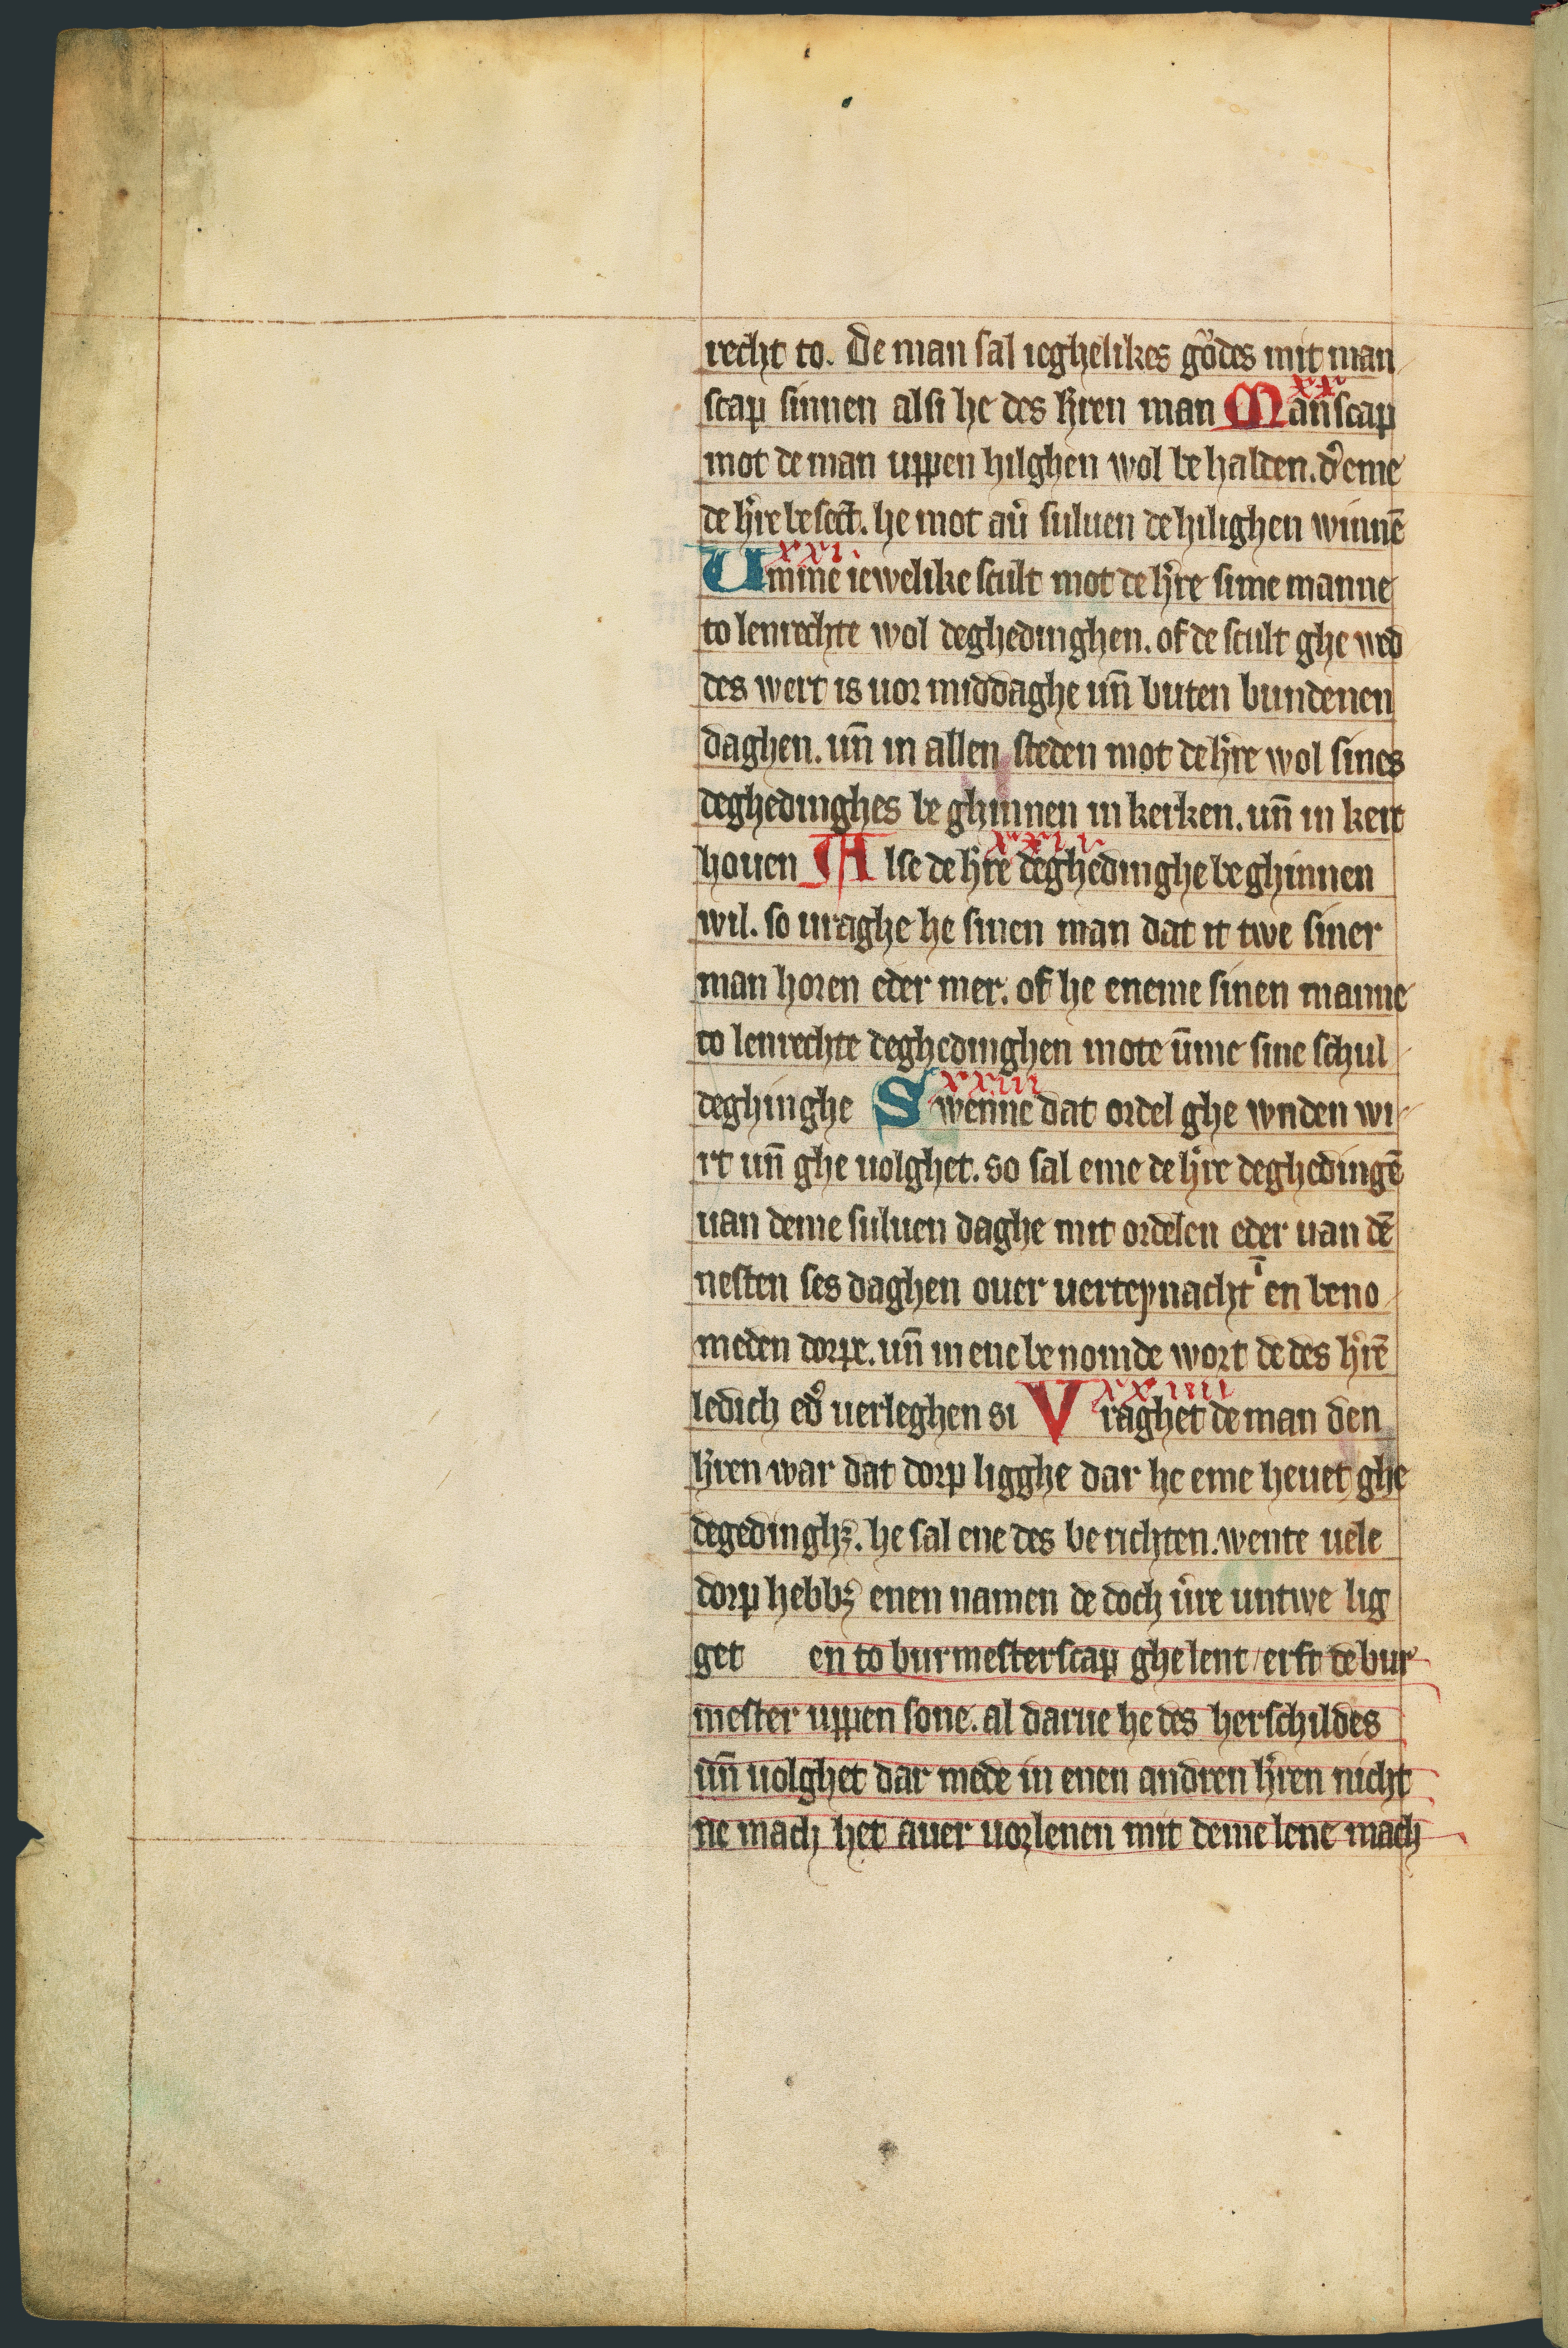 recht to. De man sal ieghelikes gůdes mit man
scap sinnen alsi he des h̓ren man Manscap
xx
mot de man uppen hilghen wol be halden. d̓ eme
de h̓re besect. he mot au̓ suluen de hilighen winnē
xxi.
Umme iewelike scult mot de h̓re sime manne
to lenrechte wol deghedinghen. of de scult ghe wed
des wert is uor middaghe un̄ buten bundenen
daghen. un̄ in allen steden mot de h̓re wol sines
deghedinghes be ghinnen in kerken. un̄ in kerc
xxii
houen Alse de h̓re deghedinghe be ghinnen
wil. so uraghe he sinen man dat it twe siner
man horen eder mer. of he eneme sinen manne
to lenrechte deghedinghen mote ūme sine schul
xxiii
deghinghe Swenne dat ordel ghe wnden wi
rt un̄ ghe uolghet. so sal eme de h̓re deghedingē
uan deme suluen daghe mit ordelen eder uan dē
nesten ses daghen ouer uerteynacht ī en beno
meden dorpe. un̄ in ene be nomde wort de des h̓rē
xxiiii
ledich ed̓ uerleghen si Vraghet de man den
h̓ren war dat dorp ligghe dar he eme heuet ghe
degedinghꝫ. he sal ene des be richten. wente uele
dorp hebbꝫ enen namen de doch u̓re untwe lig
get en to burmesterscap ghe lent / erft de bur
mester uppen sone. al darue he des herschildes
un̄ uolghet dar mede in enen andren h̓ren nicht
ne mach het auer uorlenen mit deme lene mach